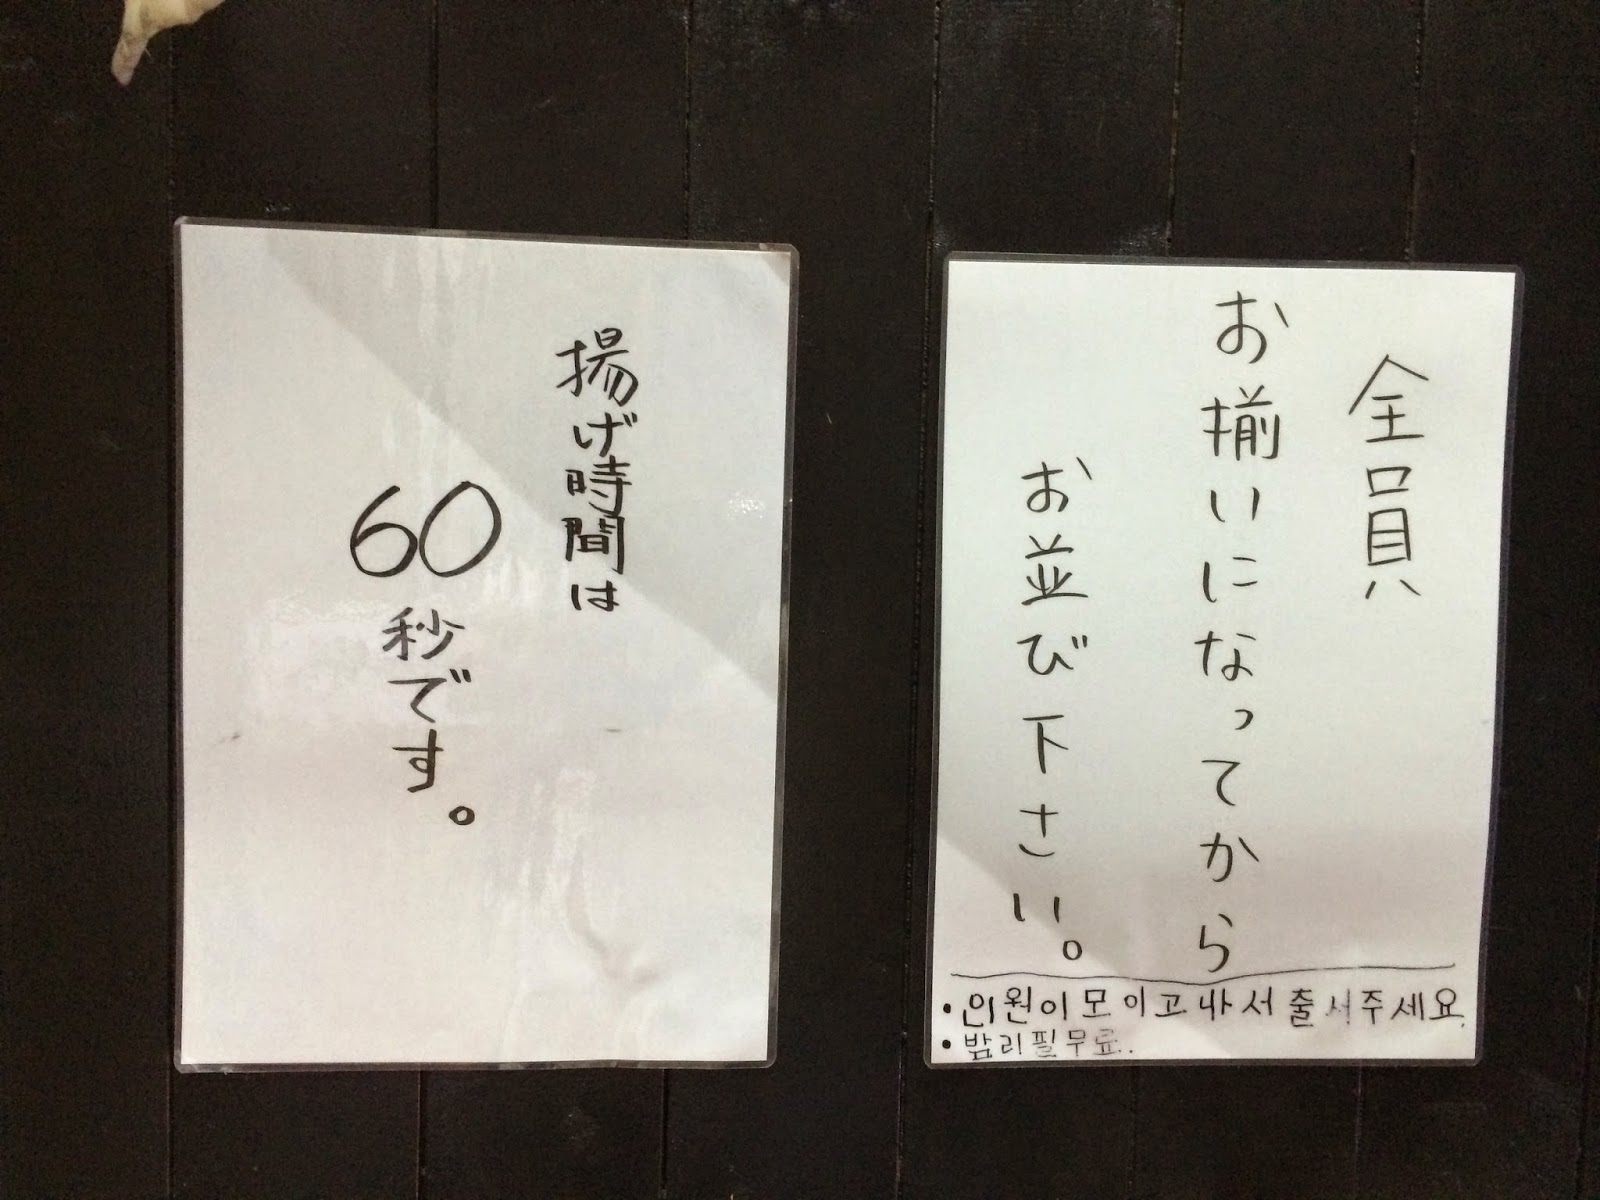 揚げ時間は
60秒です。
全員
お揃いになってから
お並び下さい。
・인원이모이고나서출서주세요.
・밥리필무료..